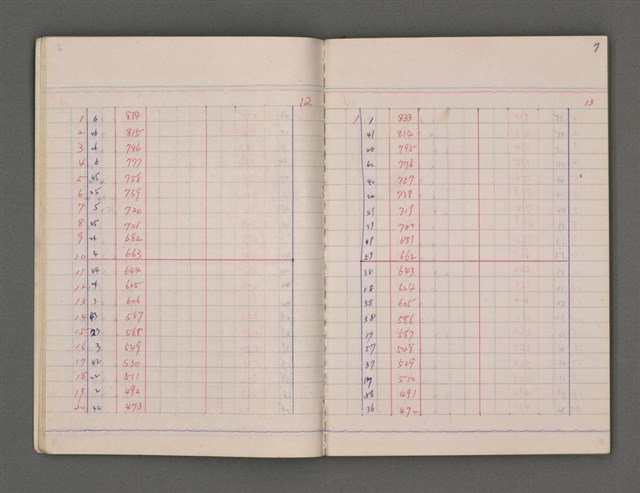 12
1 6 834
2 815
3 796
4 6 777
5 45 758
6 25 739
7 5 720
8 45 701
9 682
10 4 663
11 44 644
12 4 625
13 3 606
14 43 587
15 23 568
16 3 549
17 42 530
18 22 511
19 2 492
20 42 473
7
13
1 1 833
41 814
795
60 776
40 757
738
719
39 700
681
59 662
38 643
18 624
58 605
38 586
17 567
57 548
37 529
17 510
56 491
36 472